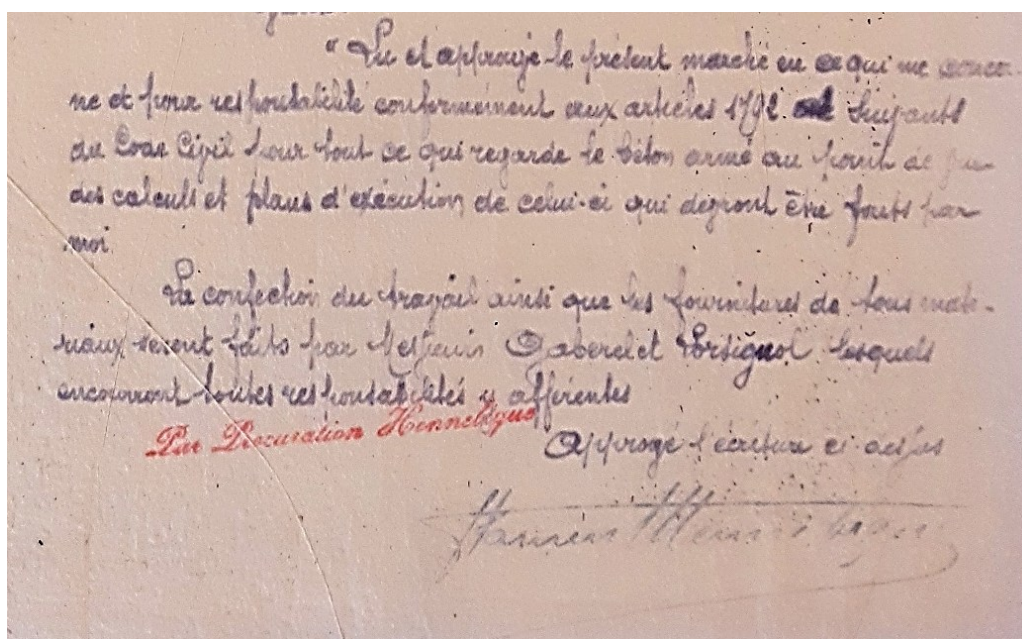 "Lu et approuvé le présent marché en ce qui me concer-
ne et pour responsabilité conformément aux articles 1792 et suivants
du Code Civil pour tout ce qui regarde le béton armé au point de vue
des calculs et plans d'exécution de celui-ci qui devront être faits par
moi
La confection du travail ainsi que les fournitures de tous maté-
riaux seront faits par Messieurs Gaberel et Lorsignol lesquels
encourront toutes responsabilités y afférentes
Par Procuration Hennebique
Approuvé l'écriture ci dessus
Hennebique